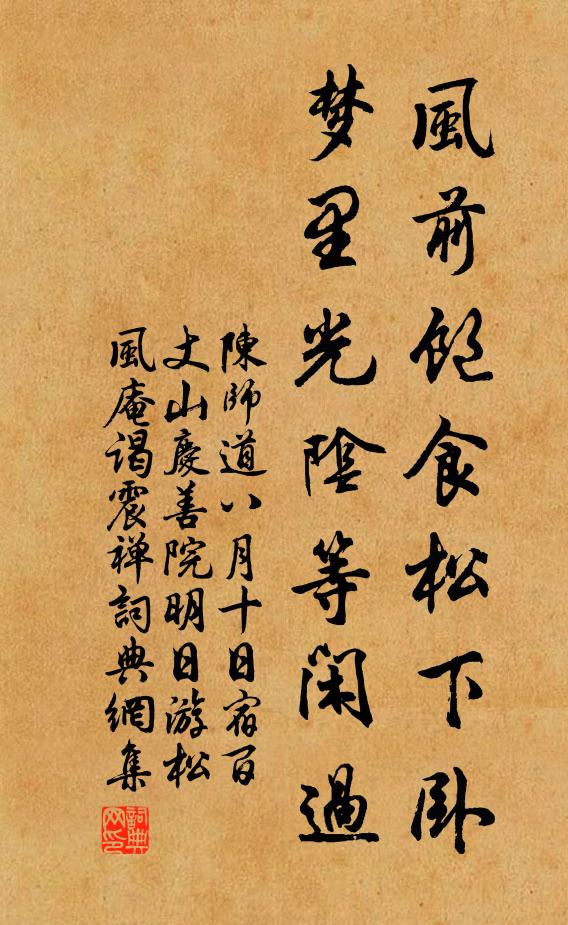 風前飽食松下卧
梦里光陰等閑過
陳師道八月十日宿百
丈山慶善院明日游松
風庵謁震禅詞典網集
詞典网印